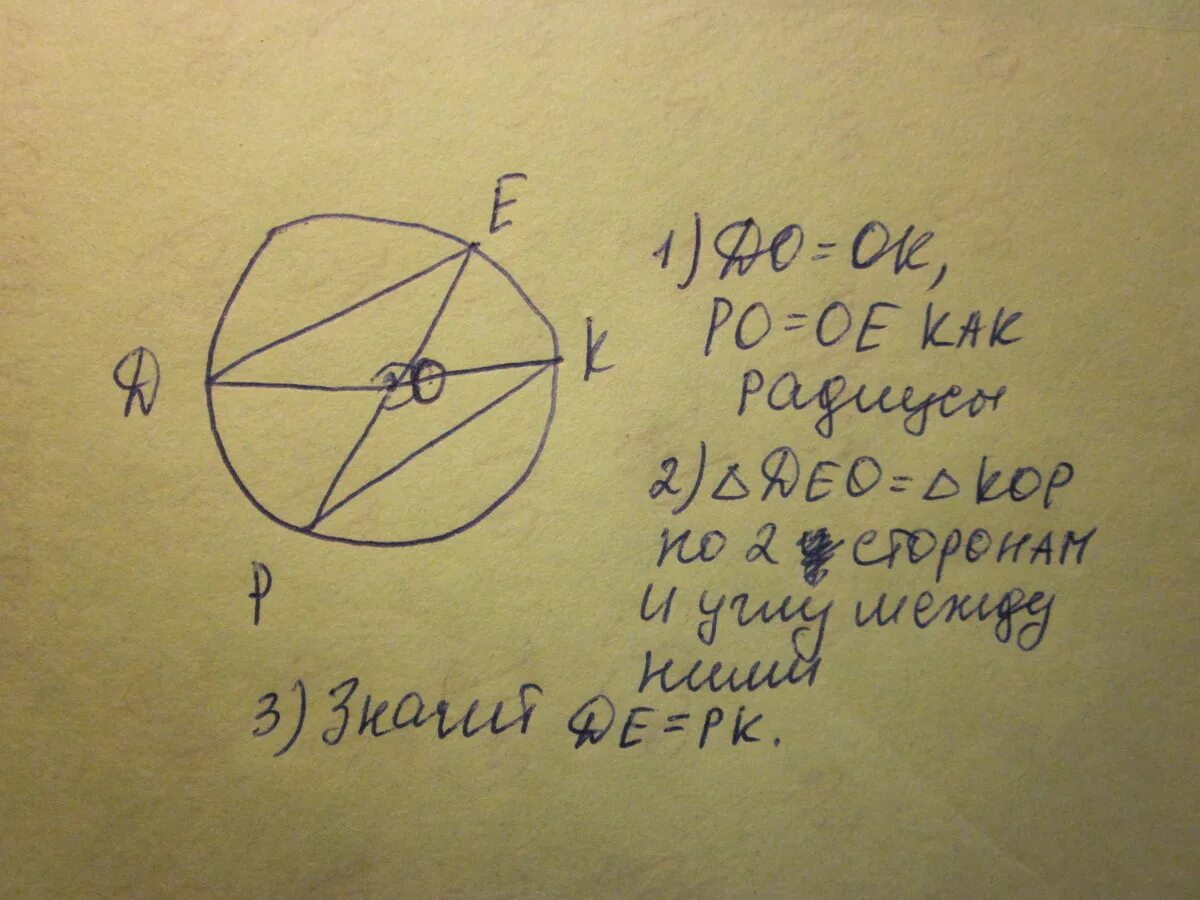 E
K
D
O
P
1) DO = OK,
PO = OE КАК
радиусы
2) △ DEO = △ KOP
по 2 сторонам
и углу между
ними
3) Значит DE = PK.